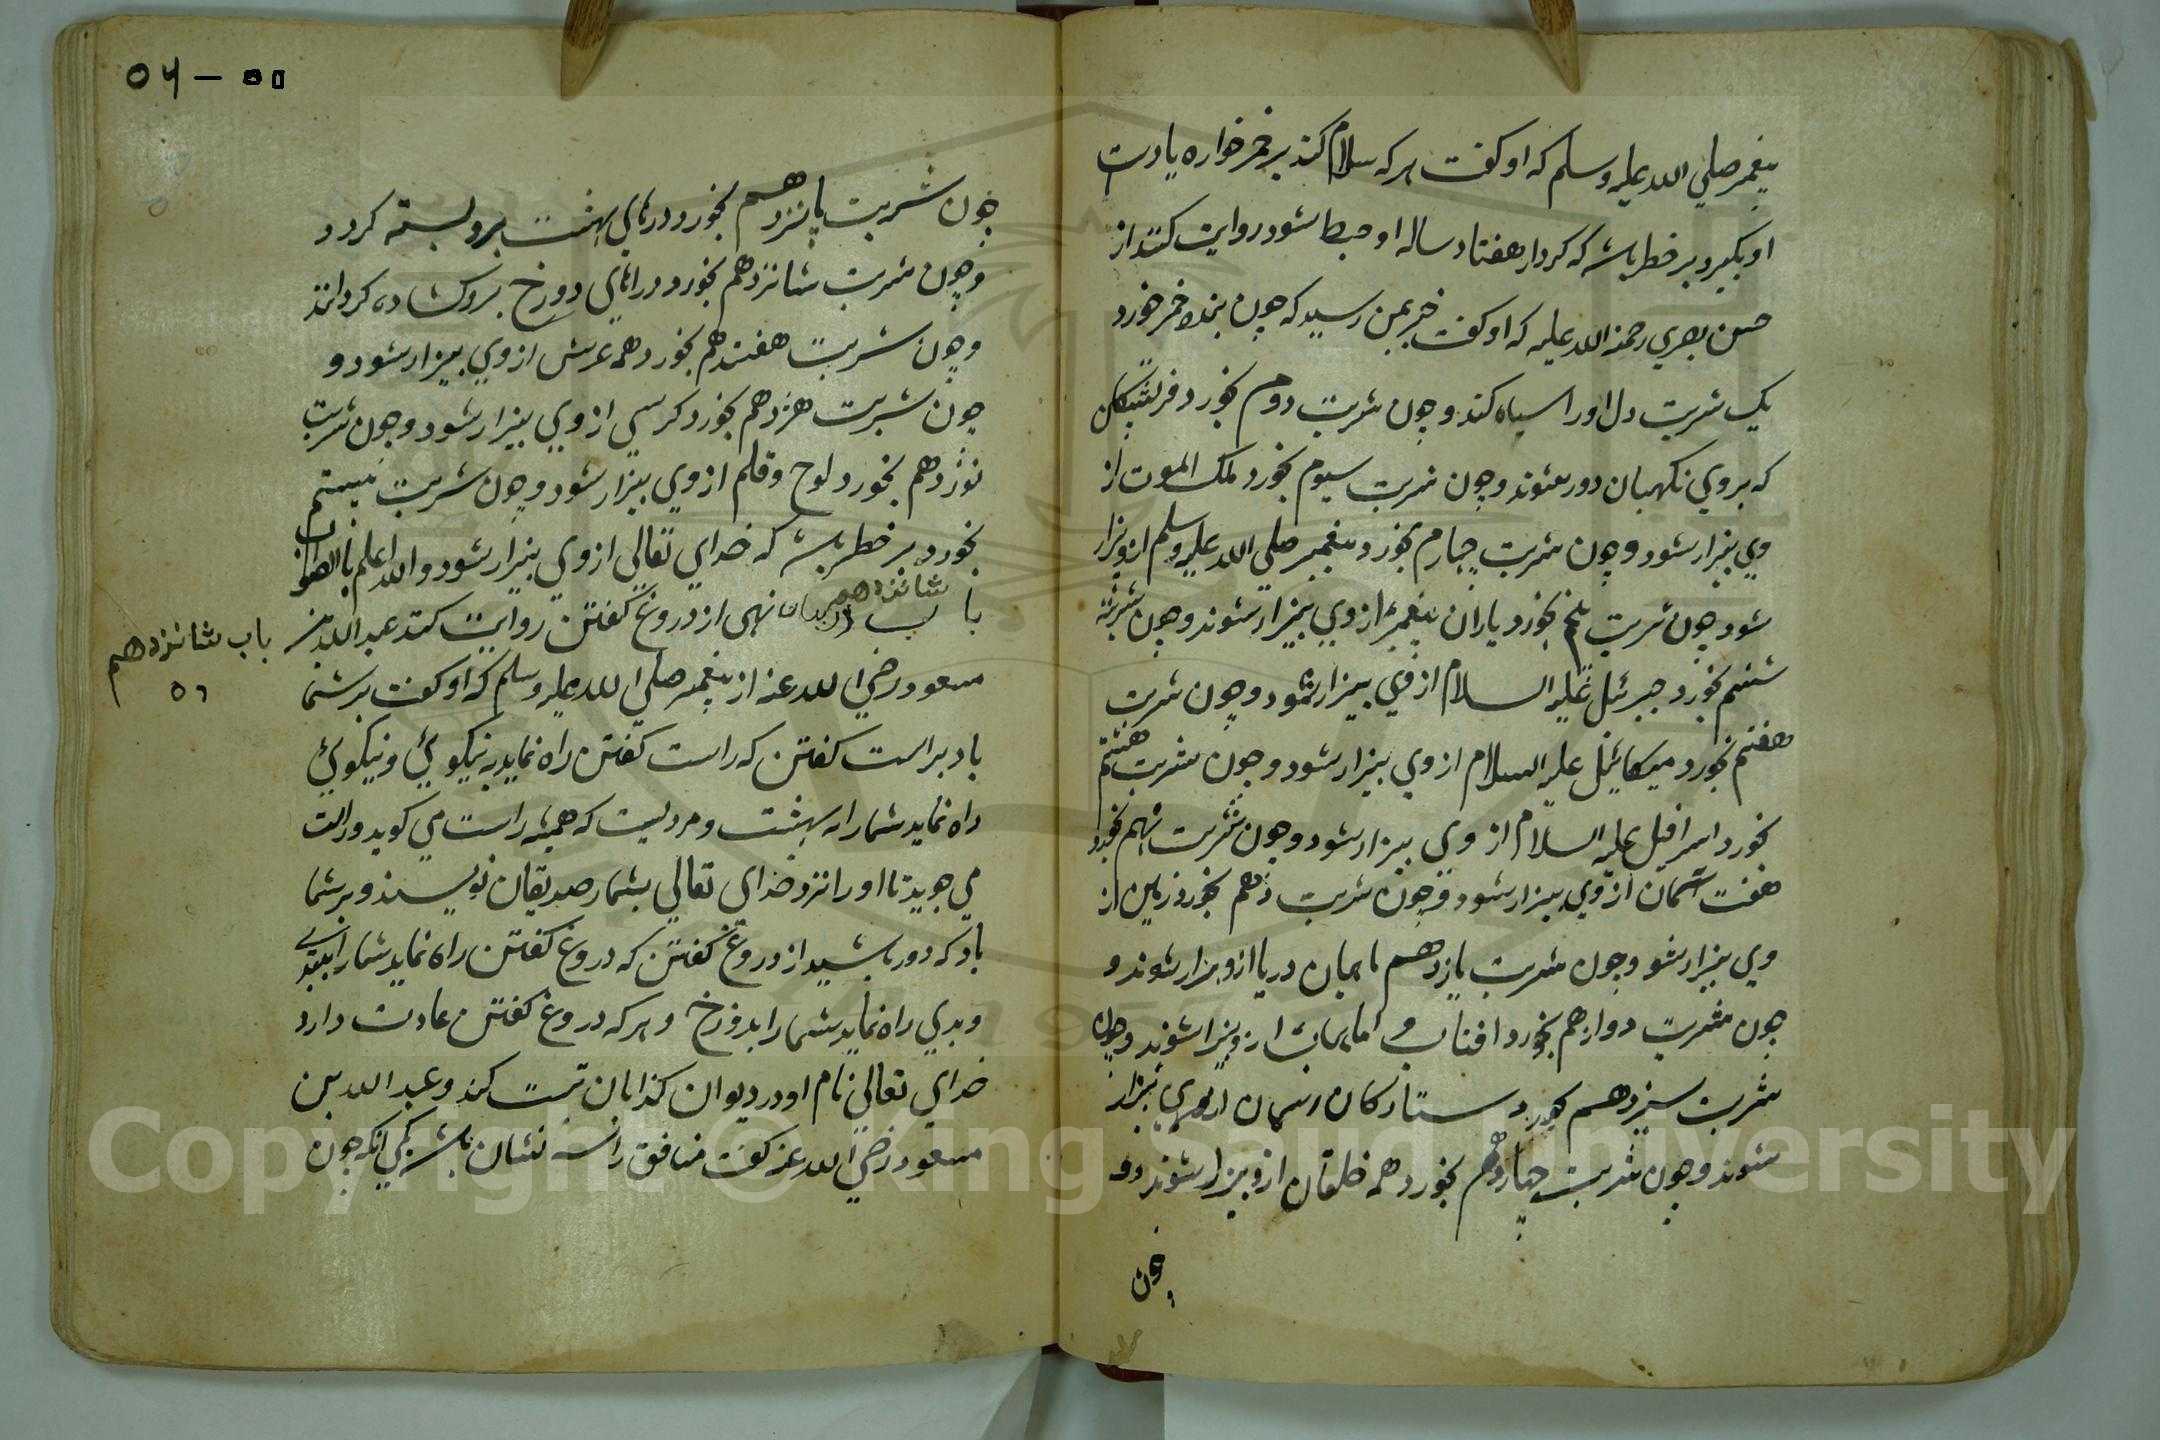 پیغمبر صلی الله علیه وسلم که او گفت هر که سلام کند بر خمر خواره یا دست
او بگیرد بر خطر باشد که کردار هفتاد ساله او حبط شود روایت کنند از
حسن بصری رحمة الله علیه که او گفت خبر بمن رسید که چون بنده خمر خورد
یک شربت دل او را سیاه کند و چون شربت دوم بخورد فریشتگان
که بروی نگهبان دور شوند و چون شربت سیوم بخورد ملک الموت از
وی بیزار شود و چون شربت چهارم بخورد پیغمبر صلی الله علیه وسلم از و بیزار
شود چون شربت پنج بخورد یاران پیغمبر از وی بیزار شوند و چون شربت
ششم بخورد جبرئیل علیه السلام از وی بیزار شود و چون شربت
هفتم بخورد میکائیل علیه السلام از وی بیزار شود و چون شربت هشتم
بخورد اسرافیل علیه السلام از وی بیزار شود و چون شربت نهم بخورد
هفت آسمان از وی بیزار شود و چون شربت دهم بخورد زمین از
وی بیزار شو و چون شربت یازدهم ماهیان دریا از و بیزار شوند و
چون شربت دوازدهم بخورد افتاب و از و بیزار شوند و چون
شربت سیزدهم بخورد ستارگان اسمان از وی بیزار
شوند و چون شربت چهاردهم بخورد همه خلقان از و بیزار شوند
چون
٥٦ - ٥٥
چون شربت پانزدهم بخورد درهای بهشت برو بسته گردد
و چون شربت شانزدهم بخورد درهای دوزخ برو گشاده گردانند
و چون شربت هفتدهم بخورد همه عرش از وی بیزار شود و
چون شربت هژدهم بخورد کرسی از وی بیزار شود و چون شربت
نوزدهم بخورد لوح و قلم از وی بیزار شود و چون شربت بیستم
بخورد بر خطر باشد که خدای تعالی از وی بیزار شود والله اعلم بالصواب
باب شانزدهم در بیان نهی از دروغ گفتن روایت کنند عبد الله بن
باب شانزدهم
٥٦
مسعود رضی الله عنه از پیغمبر صلی الله علیه وسلم که او گفت بر شما
باد براست گفتن که راست گفتن راه نماید به نیکوئی و نیکوئی
راه نماید شما را به بهشت و مردیست که همیشه راست می گوید و راست
می جوید تا او را نزد خدای تعالی بشمار صدیقان نویسند و بر شما
باد که دور باشید از دروغ گفتن که دروغ گفتن راه نماید شما را ببدی
و بدی راه نماید شما را بدوزخ و هر که دروغ گفتن عادت دارد
خدای تعالی نام او در دیوان کذابان ثبت کند و عبد الله بن
مسعود رضی الله عنه گفت منافق را سه نشان باشد یکی انکه چون
Copyright © King Saud University